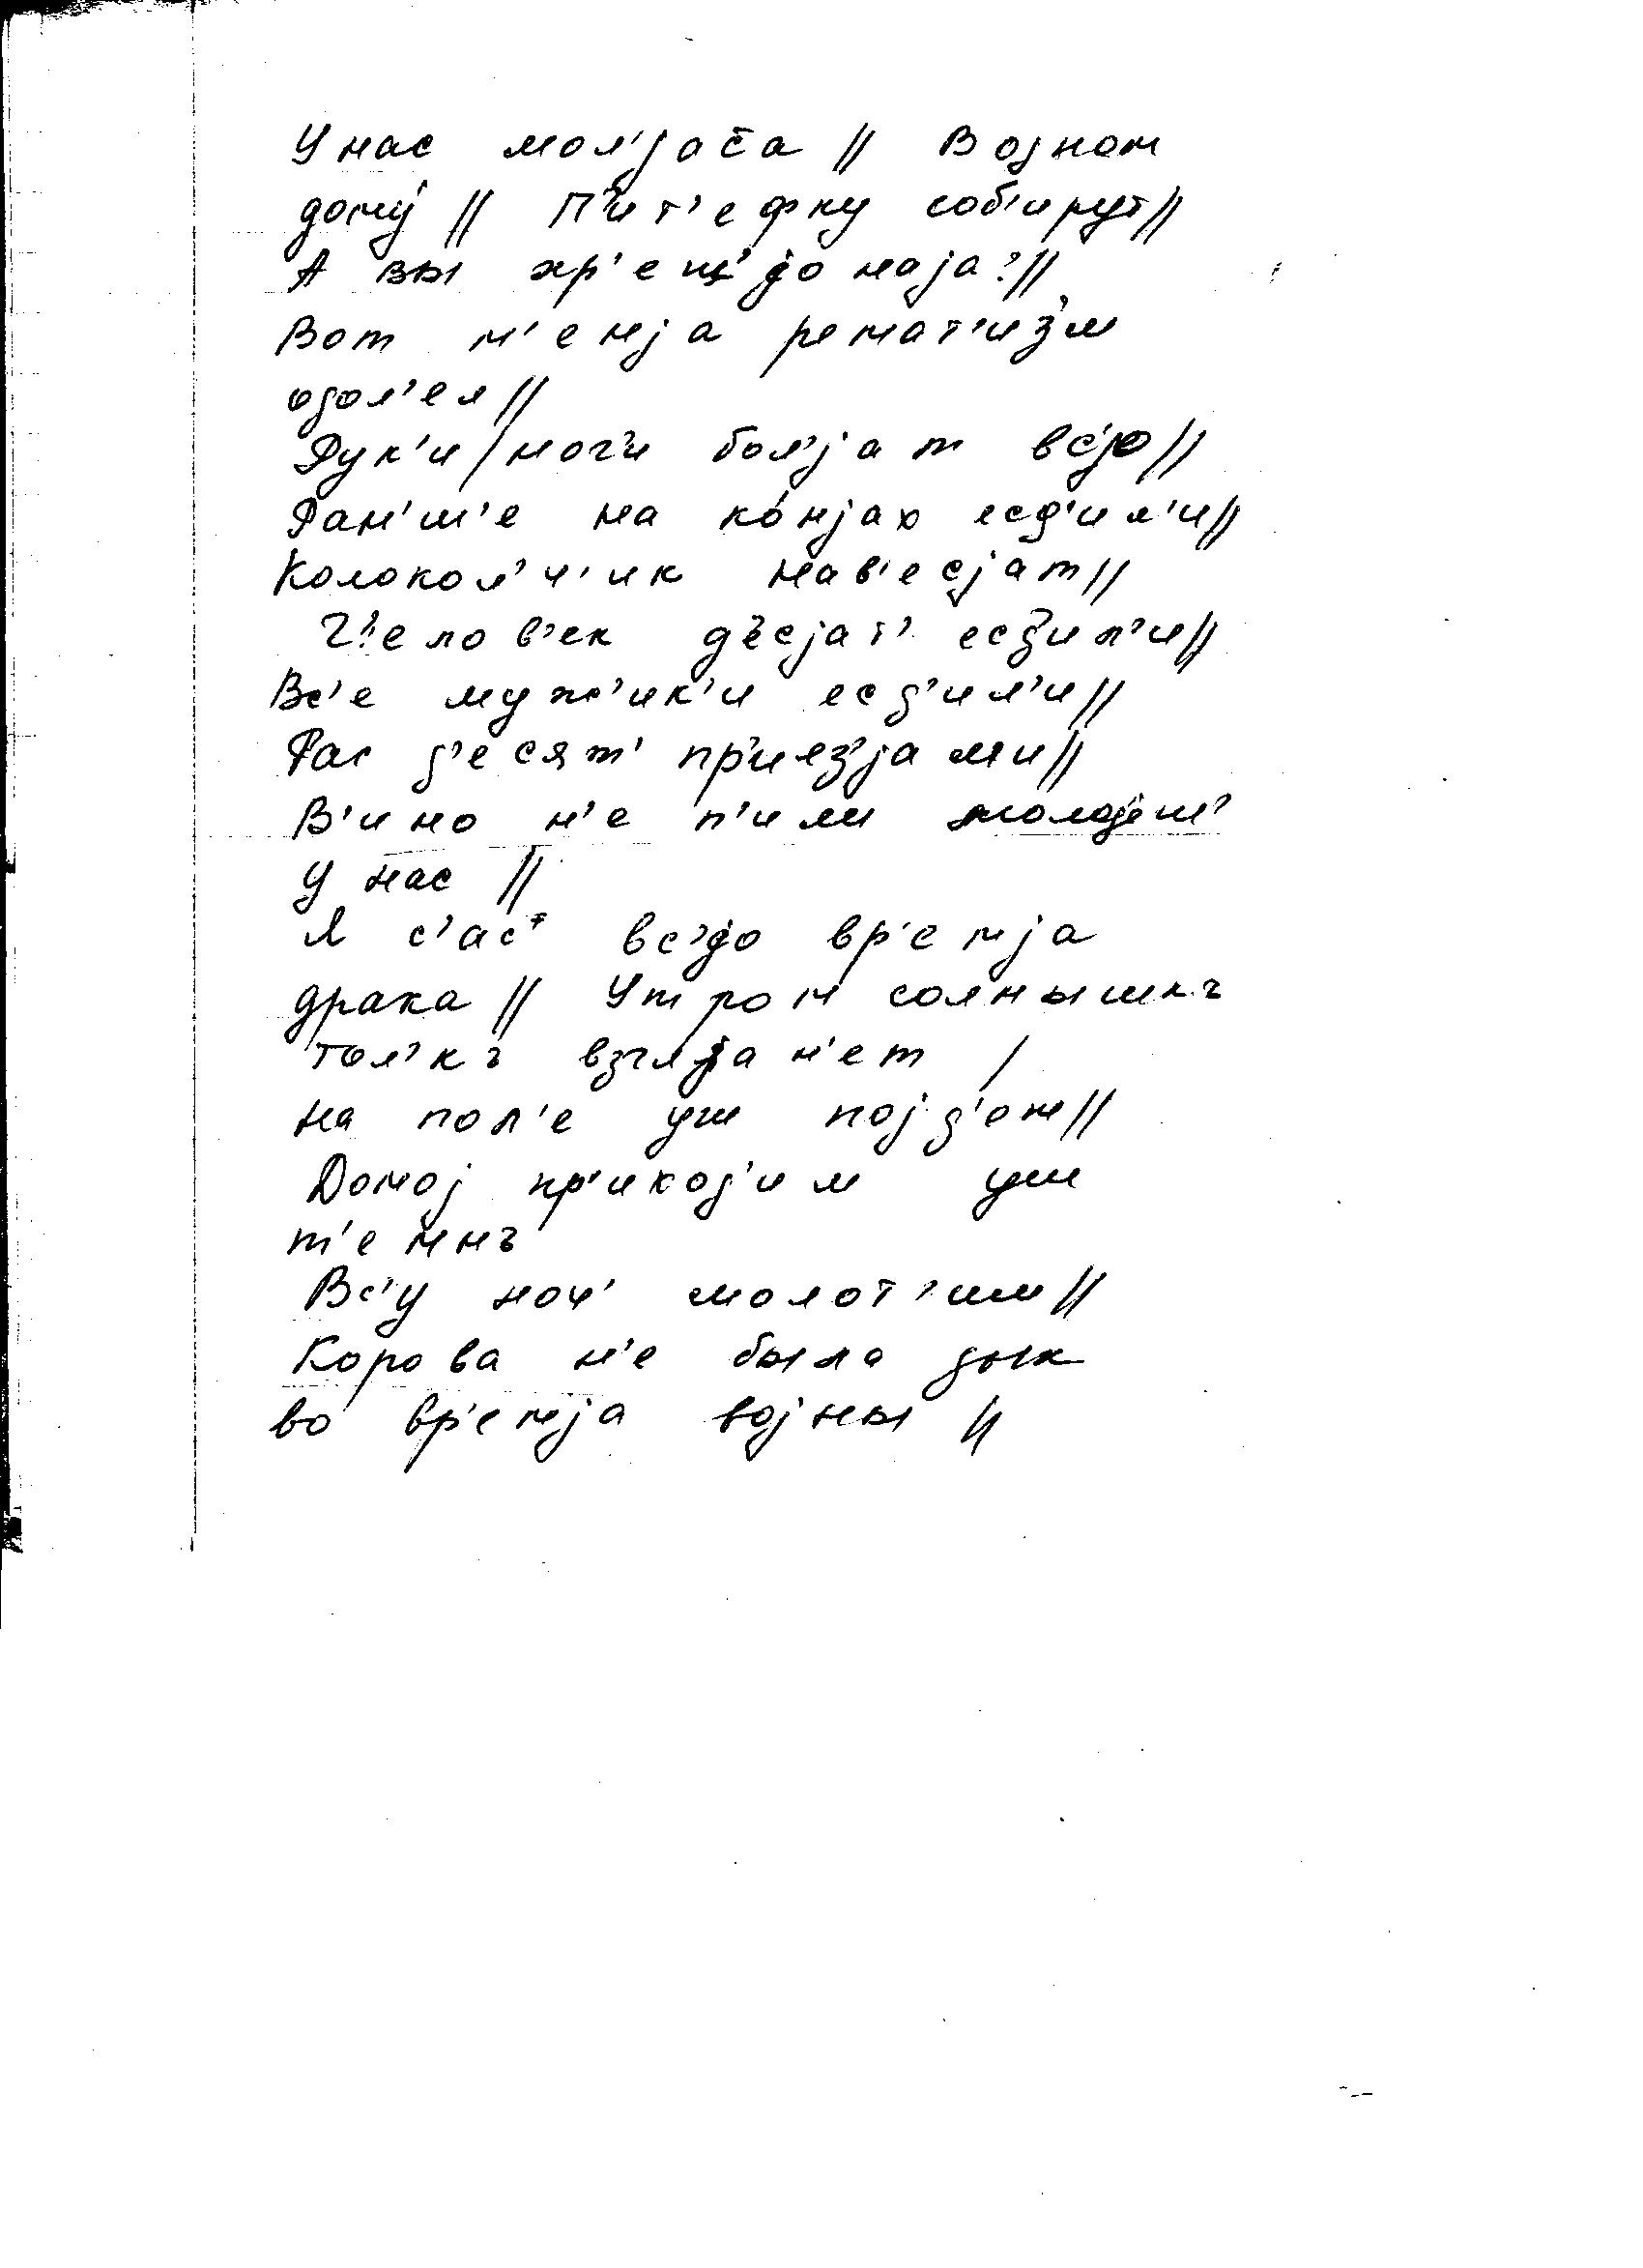 У нас мол'јаса // Војном
дому́ // П'ит'ефку соб'ирут //
А вы хр'ещ'јонаја? //
Вот м'енја ремат'изм
одол'ел //
Рук'и / ног'и бол'јат вс'јо //
Ран'ш'е на ко́њјах есд'ил'и //
Колокол'ч'ик нав'есјат //
Ч'елов'ек д'есјат' есд'ил'и //
Вс'е муж'ик'и есд'ил'и //
Рас д'есят' пр'иез'јали //
В'ино н'е п'или молод'еш'
у нас //
А с'ас вс'јо вр'емја
драка // Утром солнышкъ
тол'къ взглјан'ет /
на пол'е уш појд'ом //
Домој пр'иход'им уш
т'емнъ
Вс'у ноч' молот'им //
Корова н'е была дык
во вр'емја војны //